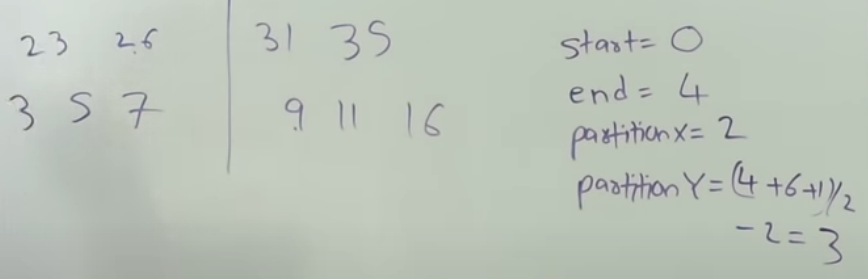 23 26 | 31 35
3 5 7 | 9 11 16
start= 0
end= 4
partitionx= 2
partitionY= (4+6+1)/2
-2=3